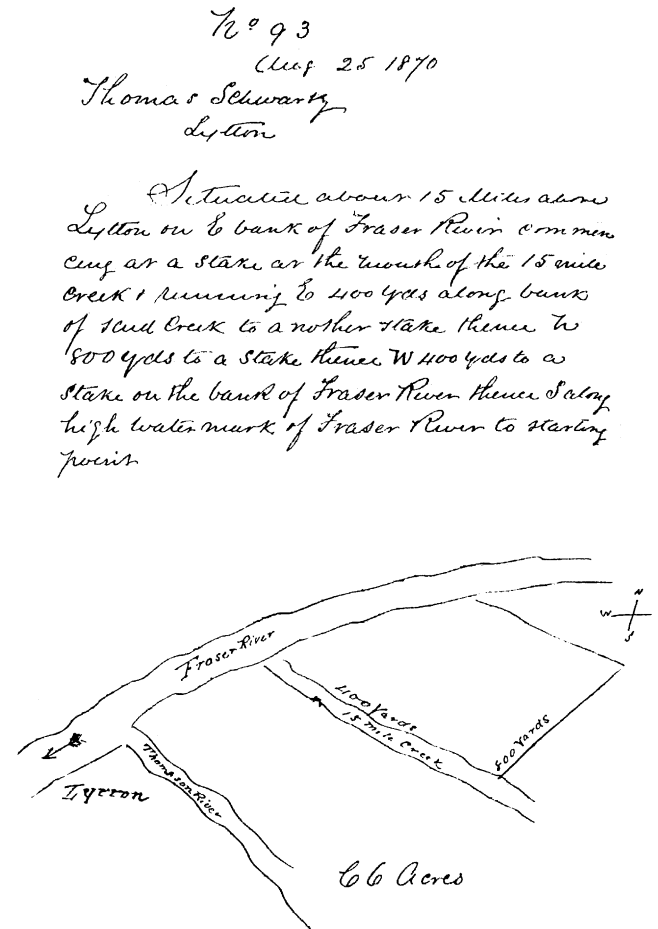 No 93
Aug 25 1870
Thomas Schwartz
Lytton
Situated about 15 Miles above
Lytton on E bank of Fraser River commen
cing at a Stake at the mouth of the 15 mile
Creek & running E 400 yds along bank
of said Creek to another stake thence N
800 yds to a Stake thence W 400 yds to a
Stake on the bank of Fraser River thence S along
high water mark of Fraser River to starting
point
N
W
S
Fraser River
400 Yards
15 mile Creek
800 Yards
Thompson River
Lytton
66 Acres